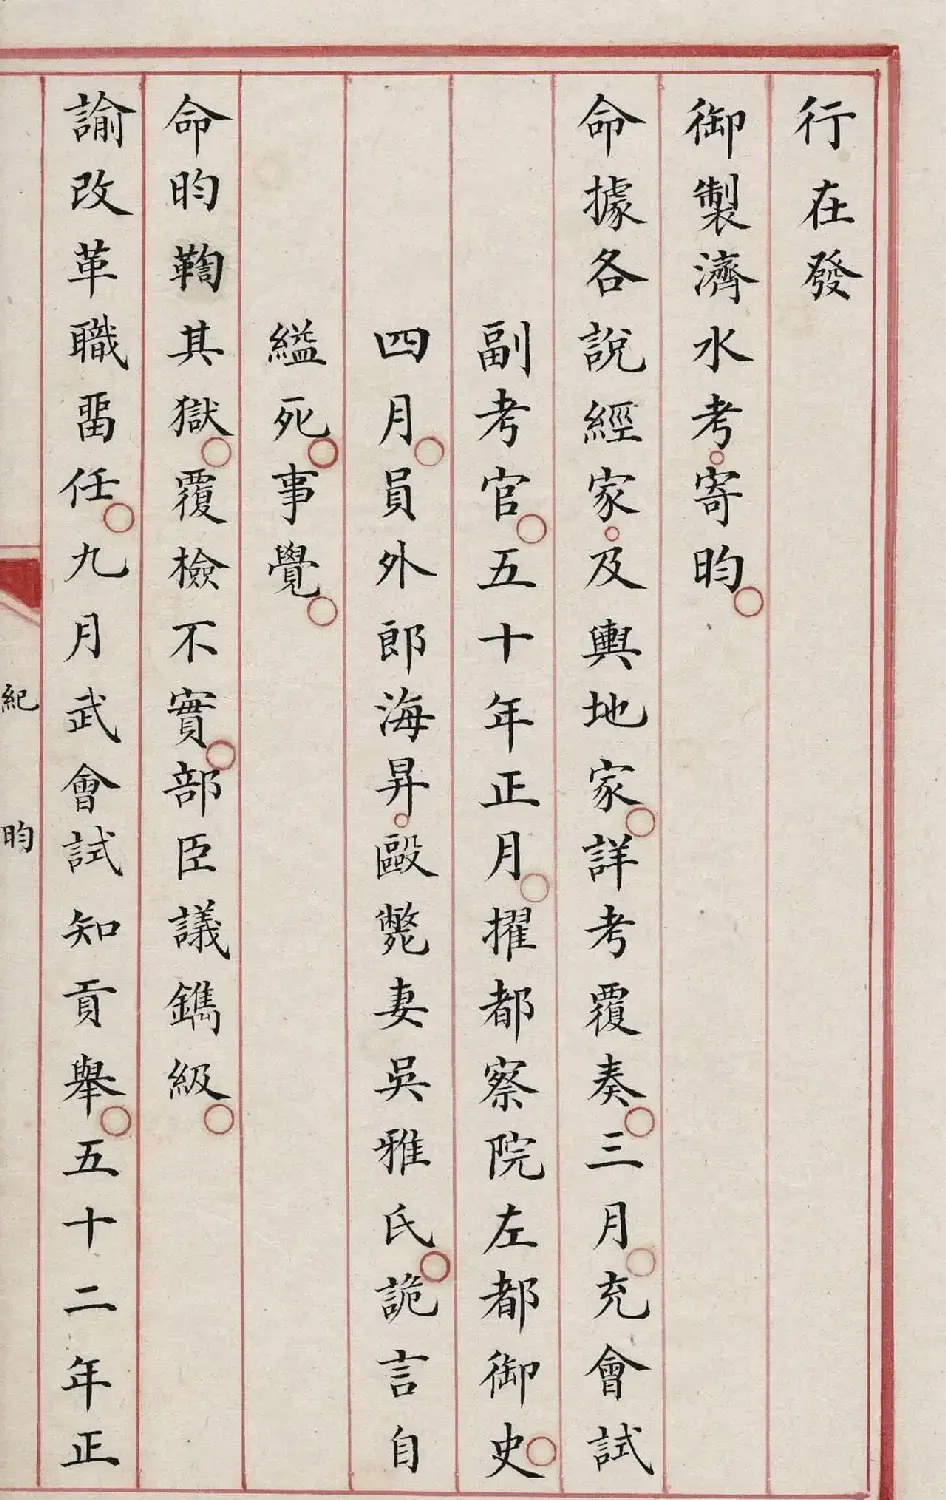 行在發
御製濟水考寄昀
命據各說經家及輿地家詳考覆奏三月充會試
副考官五十年正月擢都察院左都御史
四月員外郎海昇毆斃妻吳雅氏詭言自
縊死事覺
命昀鞫其獄覆檢不實部臣議鐫級
諭改革職畱任九月武會試知貢舉五十二年正
紀昀